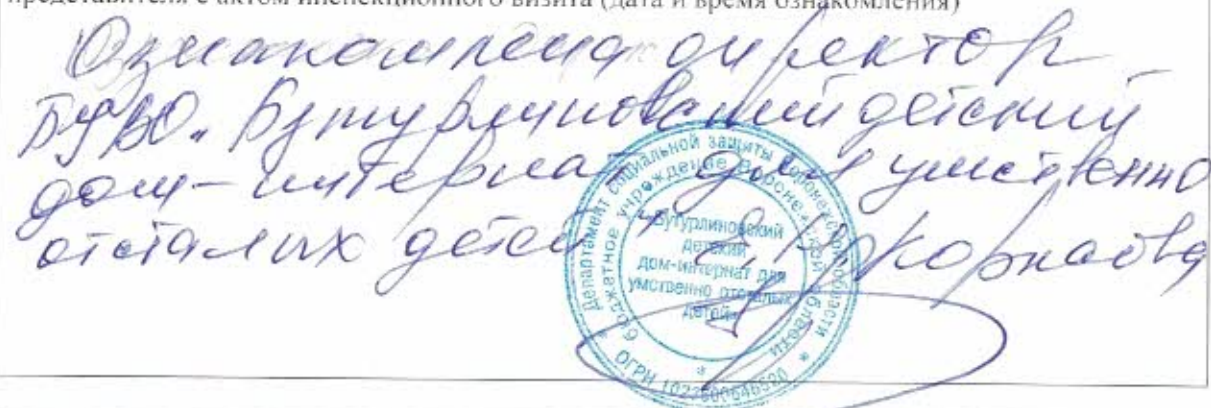 представителя с актом инспекционного визита (дата и время ознакомления)
Ознакомлена директор
БУВО „Бутурлиновский детский
дом-интернат для умственно
отсталых детей"
Департамент социальной защиты Воронежской области
бюджетное учреждение Воронежской области
«Бутурлиновский
детский
дом-интернат для
умственно отсталых
детей»
* ОГРН